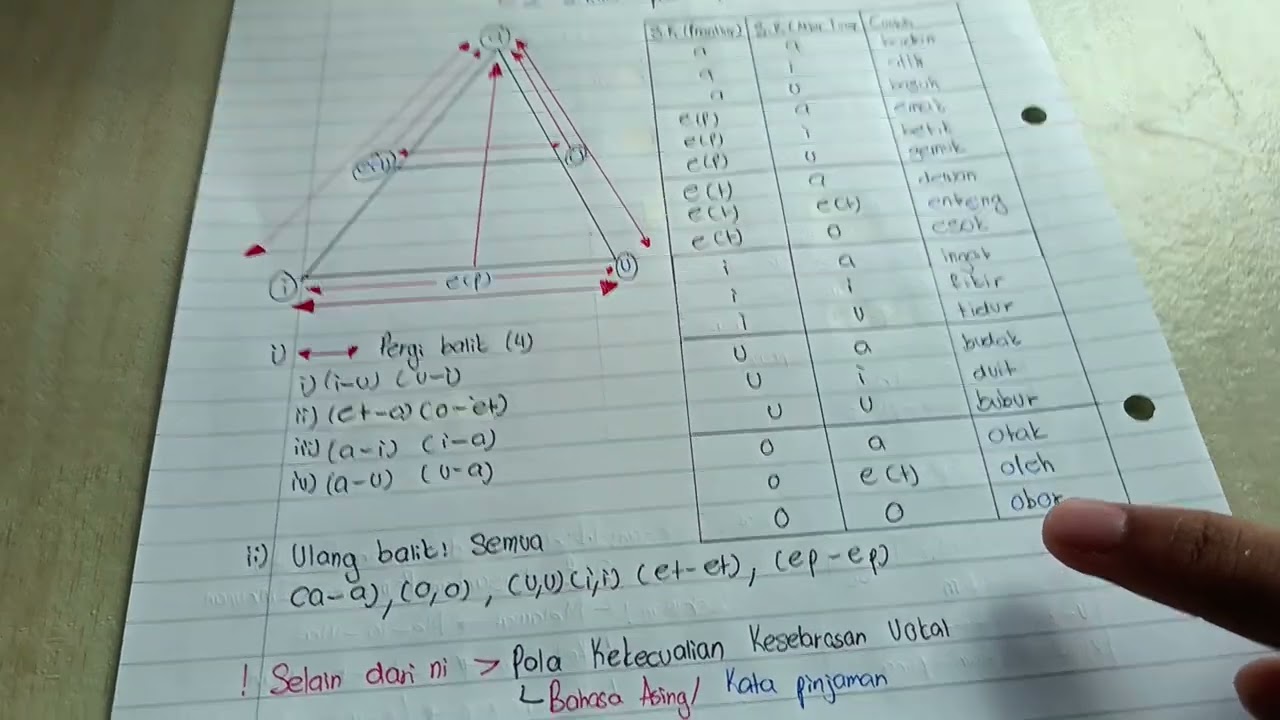 a
e(t)
o
i
e(p)
u
i) Pergi balik (4)
i) (i-u) (u-i)
ii) (et-o) (o-et)
iii) (a-i) (i-a)
iv) (a-u) (u-a)
ii) Ulang balik: Semua
(a-a), (o,o), (u,u) (i,i) (et-et), (ep-ep)
! Selain dari ni > Pola Kekecualian Keselarasan Vokal
Bahasa Asing/ Kata pinjaman
a a
a i adik
a u basuh
e(p) a emak
e(p) i betik
e(p) u gemuk
e(t) a dewan
e(t) e(t) enteng
e(t) o esok
i a ingat
i i bibir
i u tidur
u a budak
u i duit
u u bubur
o a otak
o e(t) oleh
o o obor